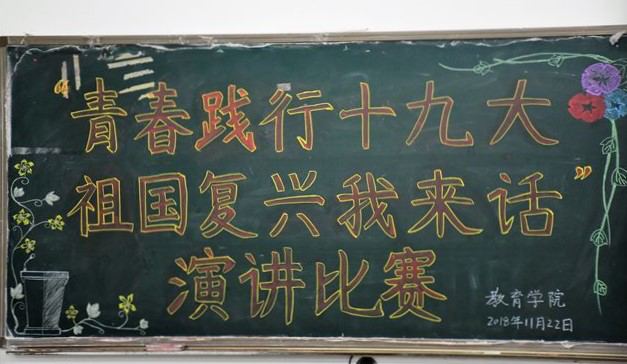 “青春践行十九大
祖国复兴我来话”
演讲比赛
教育学院
2018年11月22日